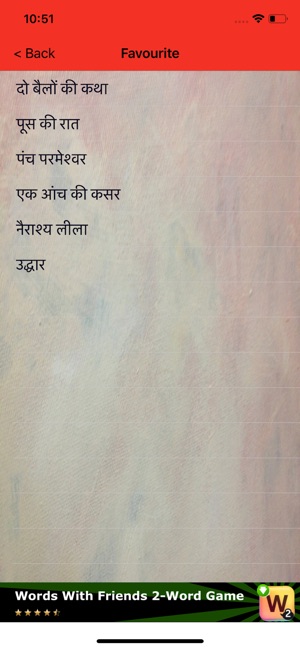 10:51
< Back Favourite
दो बैलों की कथा
पूस की रात
पंच परमेश्वर
एक आंच की कसर
नैराश्य लीला
उद्धार
Words With Friends 2-Word Game
W
2